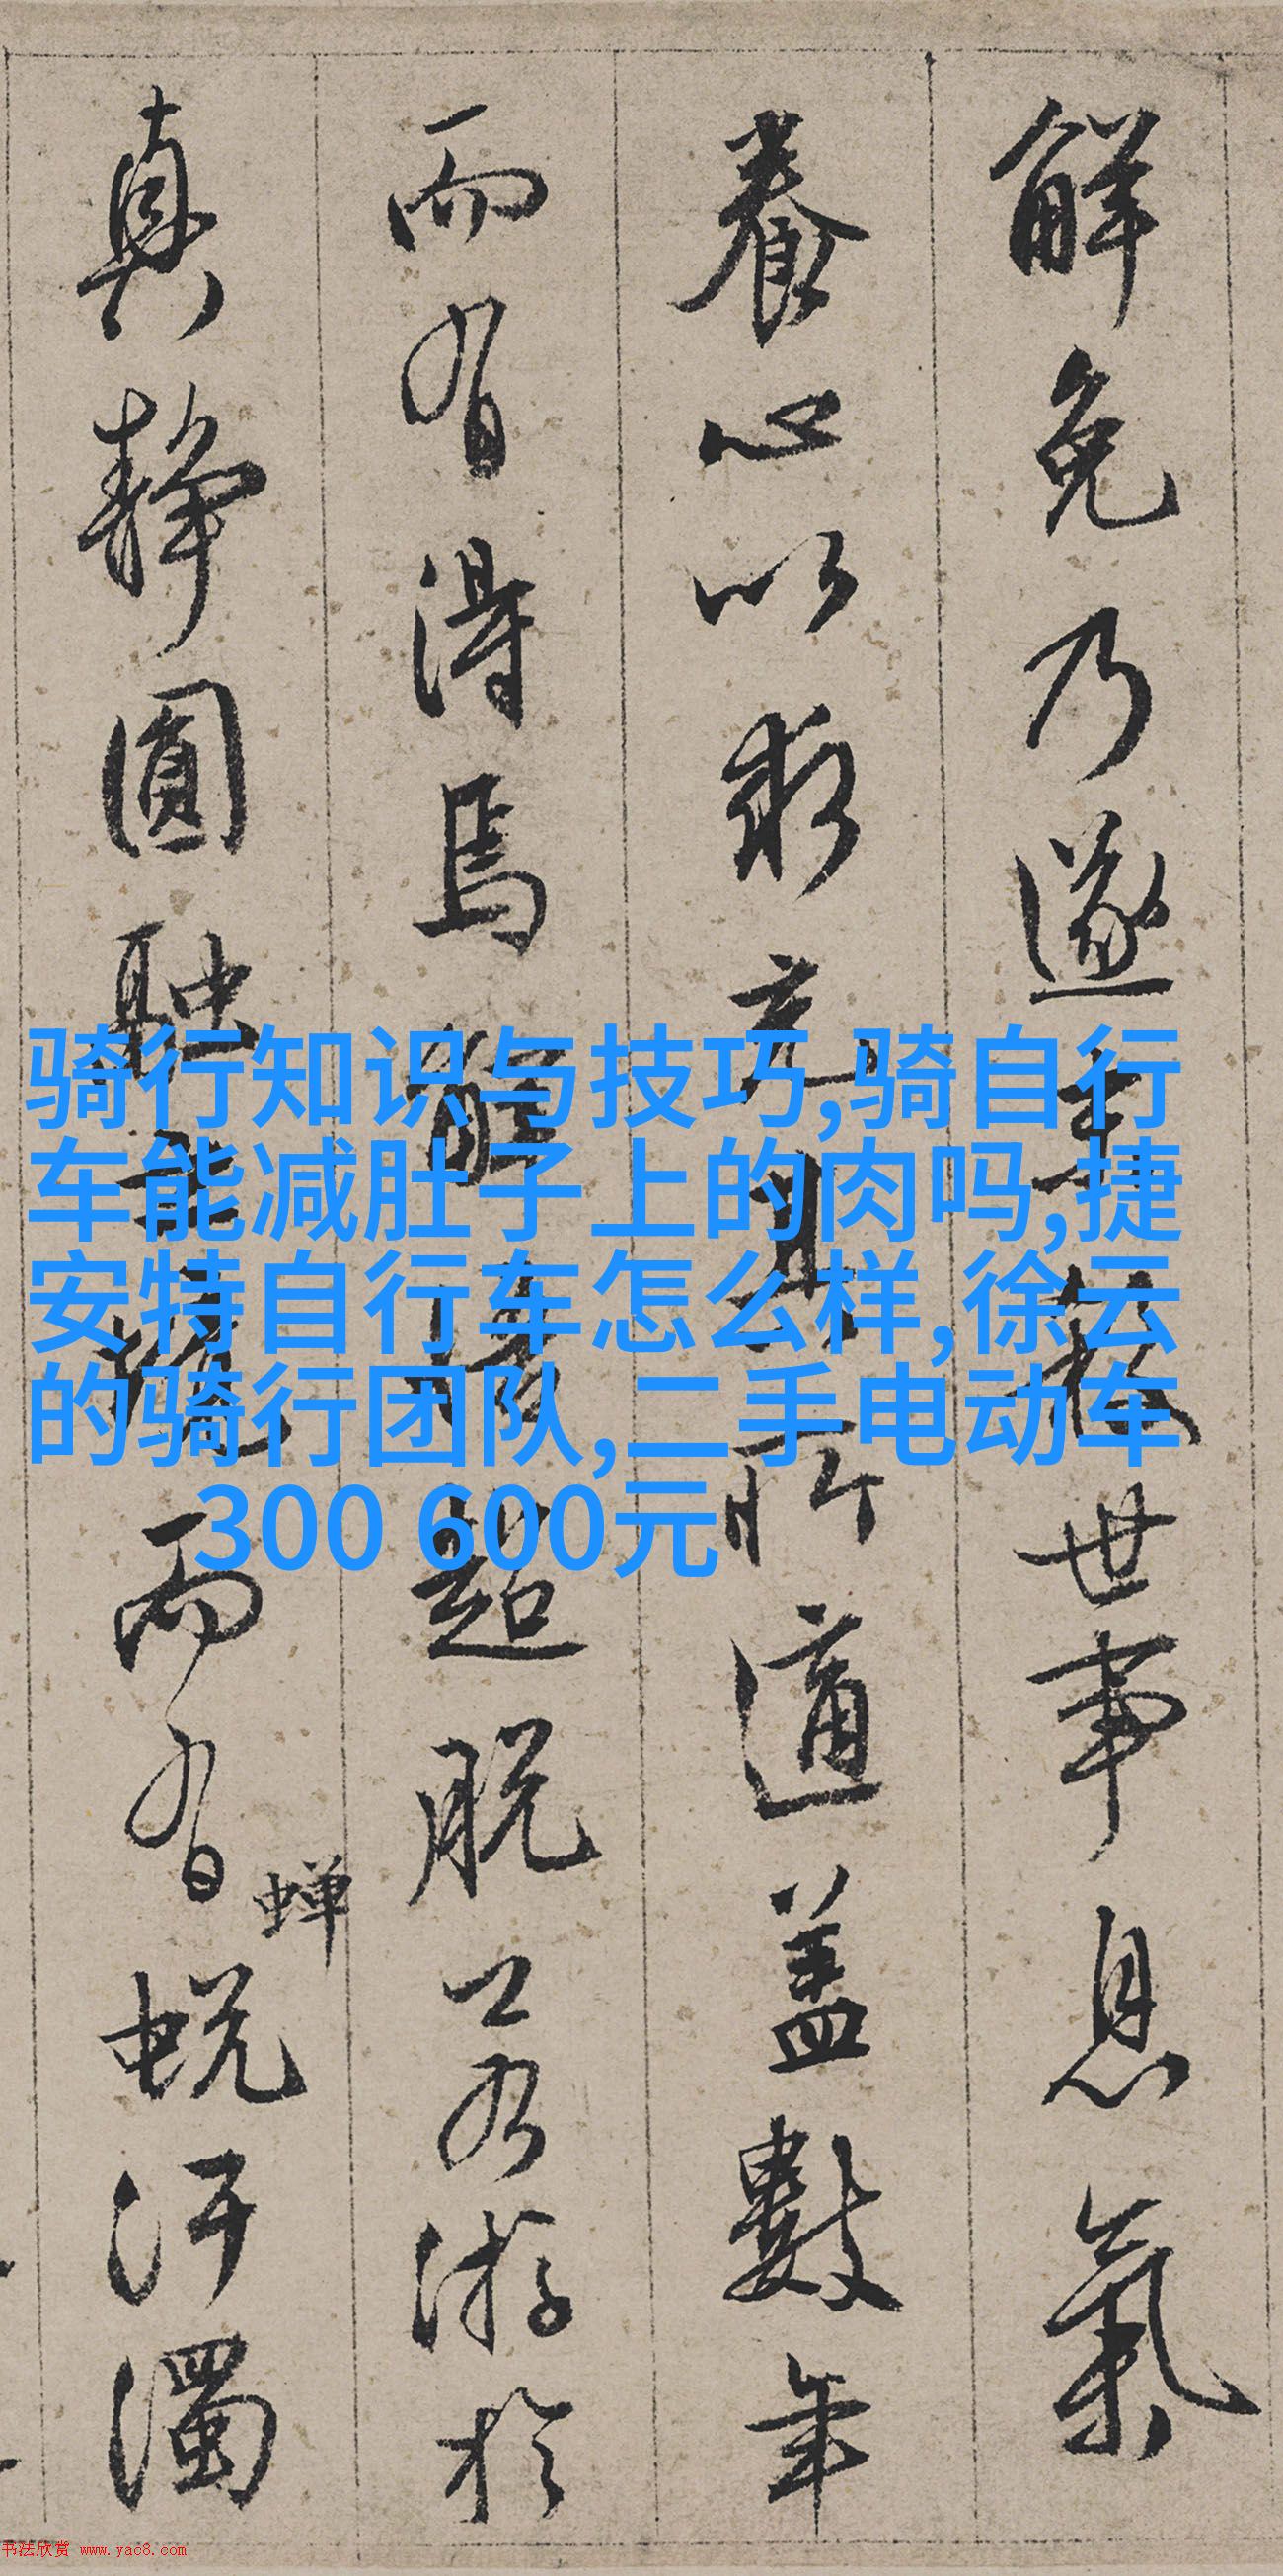 解免乃遂求
世事息氣
養心以求
所適蓋數年
而有得焉
超脱
游於
真靜圓融
而有
蟬
蜕汙濁
骑行知识与技巧,骑自行
车能减肚子上的肉吗,捷
安特自行车怎么样,徐云
的骑行团队,二手电动车
300 600元
书法欣赏 www.yac8.com